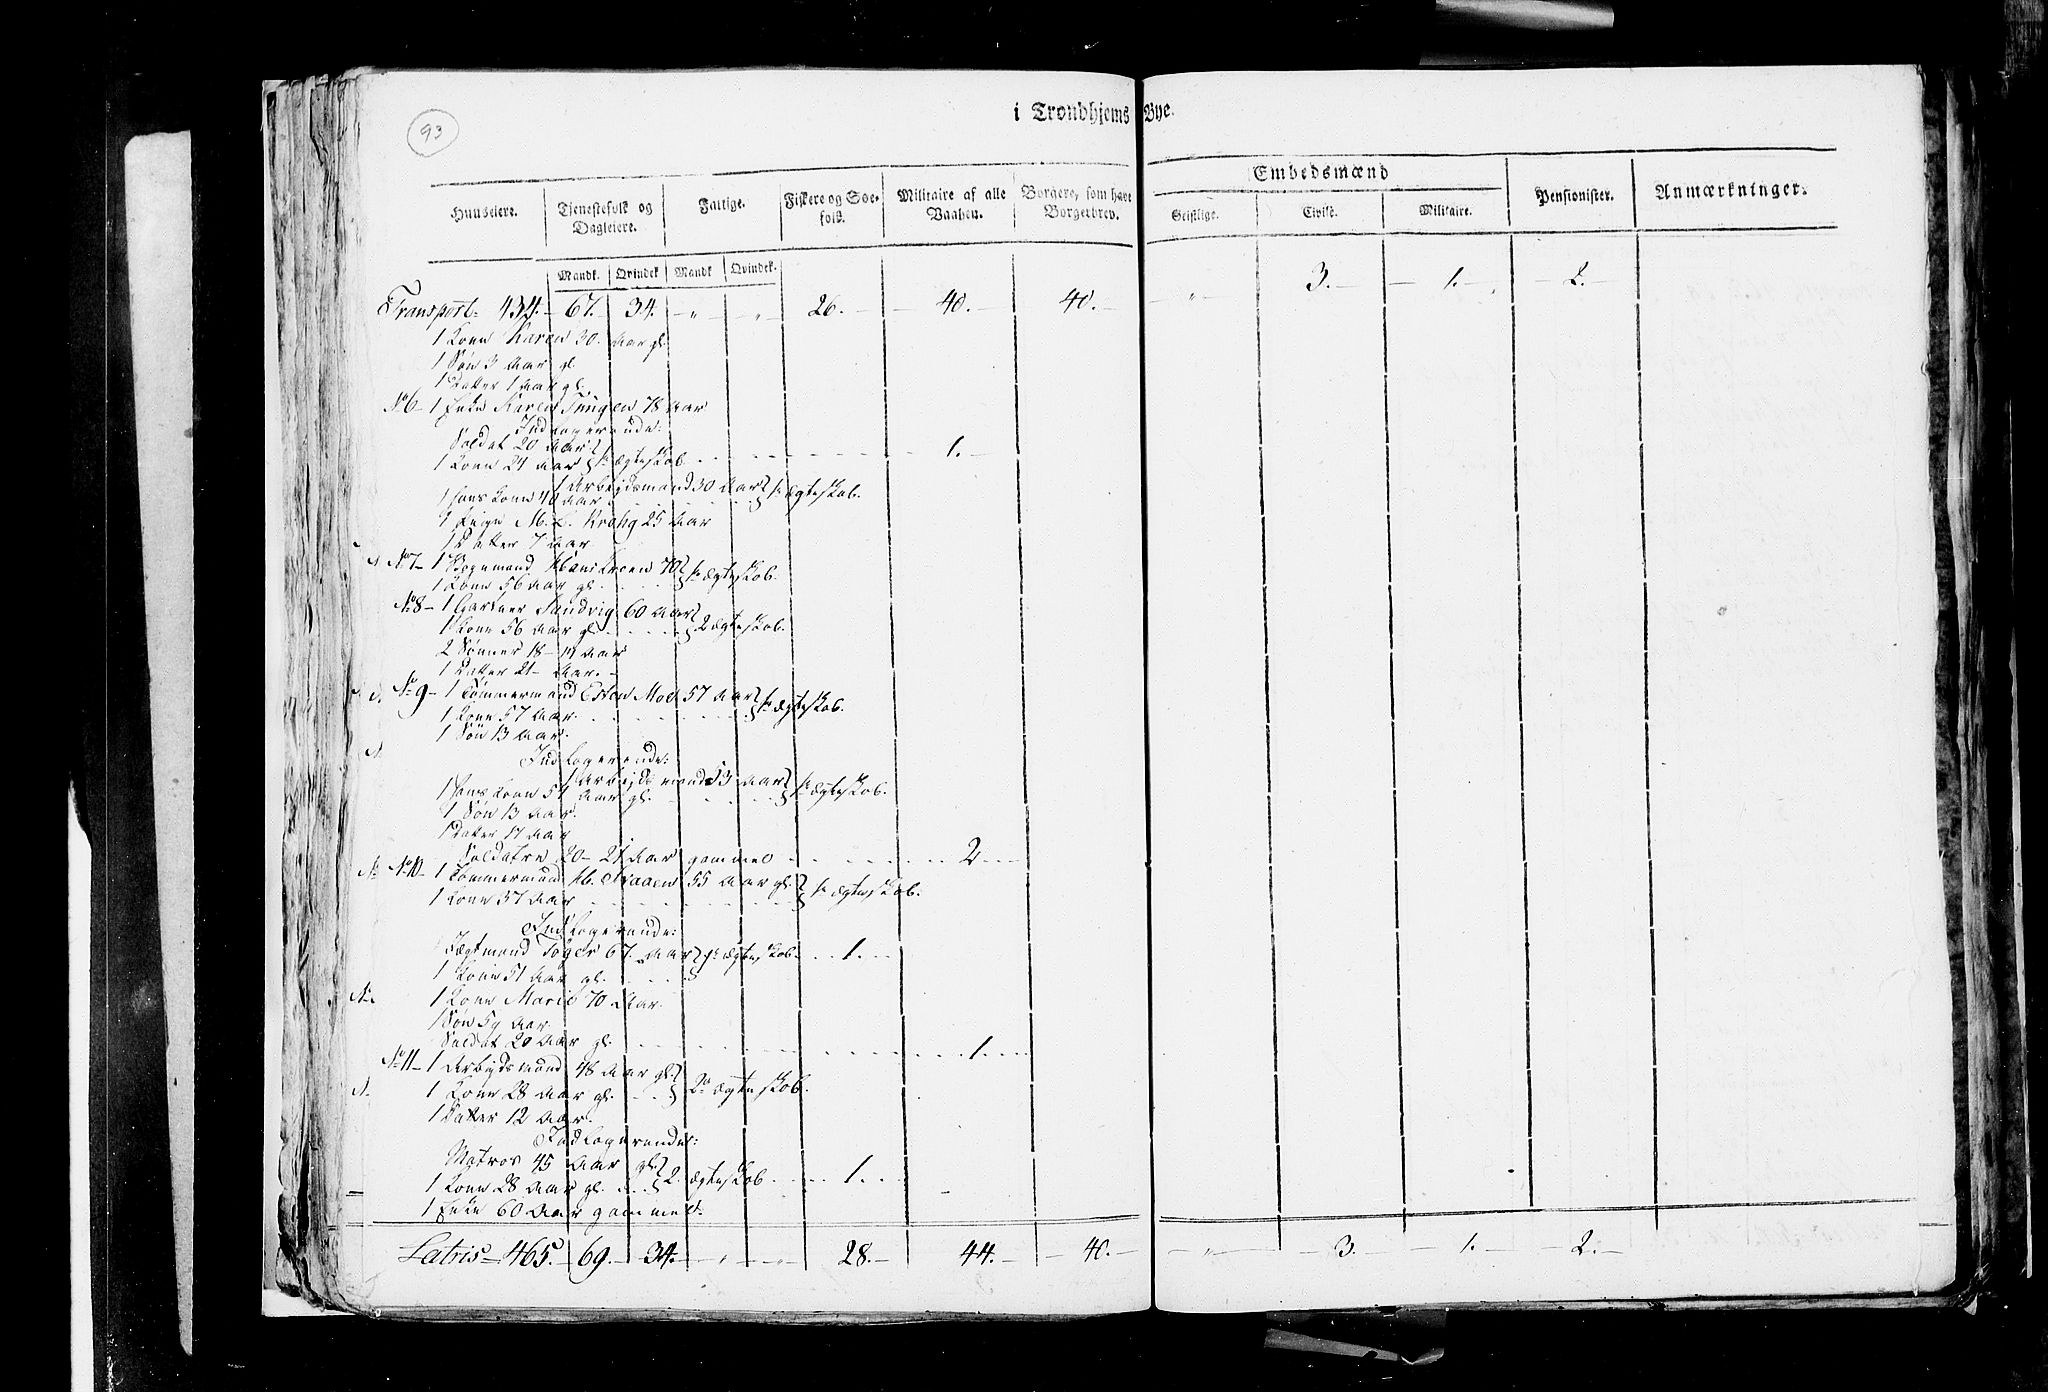 93
i Trondhjems Bye.
Huuseiere. Tjenestefolk og Dagleiere. Fattige. Fiskere og Søefolk. Militaire af alle Vaaben. Borgere, som have Borgerbrev. Embedsmænd Pensionister. Anmærkninger.
Geistlige. Civile. Militaire.
Mandk. Qvindek Mandk Qvindek.
Transport 434. 67. 34. „ „ 26. 40. 40. „ 3. 1. 2.
1 Kone Karen 30. Aar gl.
1 Søn 3 Aar gl.
1 Datter 1 Aar gl.
No 6 1 Enke Karen 78 Aar
Indlogerende:
Soldat 20 Aar
1 Kone 24 Aar 1te ægteskab 1.
1 Arbejdsmand 30 Aar
1 hans Kone 40 Aar 1te ægteskab.
1 Pige M. Krohg 25 Aar
1 Datter 7 Aar
No 7 1 70
1 Kone 56 Aar gl. 1te ægteskab.
No 8 1 Gartner Sandvig 60 Aar
1 Kone 56 Aar gl. 2 ægteskab.
2 Sønner 18 Aar
1 Datter 21 Aar.
No 9 1 Tømmermand Esten Moe 57 Aar
1 Kone 57 Aar. 1te ægteskab.
1 Søn 13 Aar.
Indlogerende:
1 Arbejdsmand 53 Aar
1 hans Kone 51 Aar gl. 1te ægteskab.
1 Søn 13 Aar.
1 Datter 17 Aar
Soldater 20 - 21 Aar gammel 2
No 10 1 Tømmermand 55 Aar gl.
1 Kone 57 Aar 1te ægteskab.
Indlogerende:
Jægtmand 67. Aar 1te ægteskab. 1.
1 Kone 51 Aar gl.
1 Kone Marie 70 Aar.
1 Søn 59 Aar
Soldat 20 Aar gl. 1.
No 11 1 Arbejdsmand 48 Aar gl.
1 Kone 28 Aar gl. 2det ægteskab.
1 Datter 12 Aar.
Indlogerende:
Matros 45 Aar gl.
1 Kone 28 Aar gl. 2. ægteskab 1.
1 Enke 60 Aar gammel.
Latris 465. 69. 34. „ „ 28. 44. 40. „ 3. 1. 2.